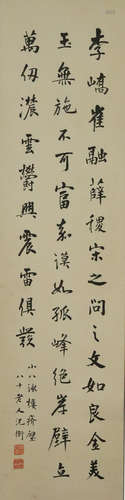 李嶠崔融薛稷宋之問之文如良金美
玉無施不可富嘉謨如孤峰絕岸壁立
萬仞濃雲鬱興震雷俱發
八十老人沈衛